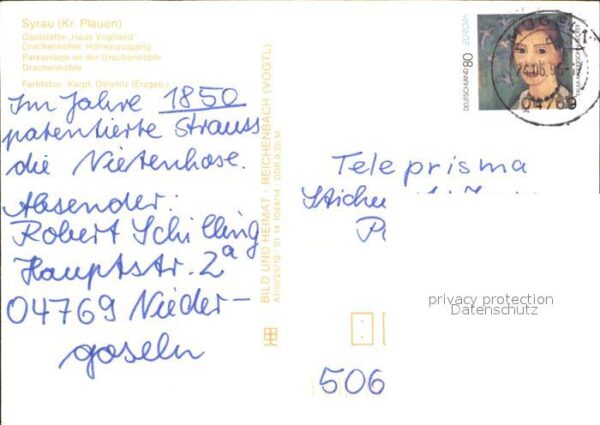 Syrau (Kr. Plauen)
Gaststätte „Haus Vogtland"
Drachenhöhle, Höhlenausgang
Parkanlage an der Drachenhöhle
Drachenhöhle
Farbfotos: Karpf, Oelsnitz (Erzgeb.)
Im Jahre 1850
patentierte Strauss
die Nietenhose.
Absender:
Robert Schilling
Hauptstr. 2a
04769 Nieder-
goseln
BILD UND HEIMAT · REICHENBACH (VOGTL)
01 14 DDR 0,20 M
DEUTSCHLAND 80 EUROPA
04769
Teleprisma
506
privacy protection
Datenschutz